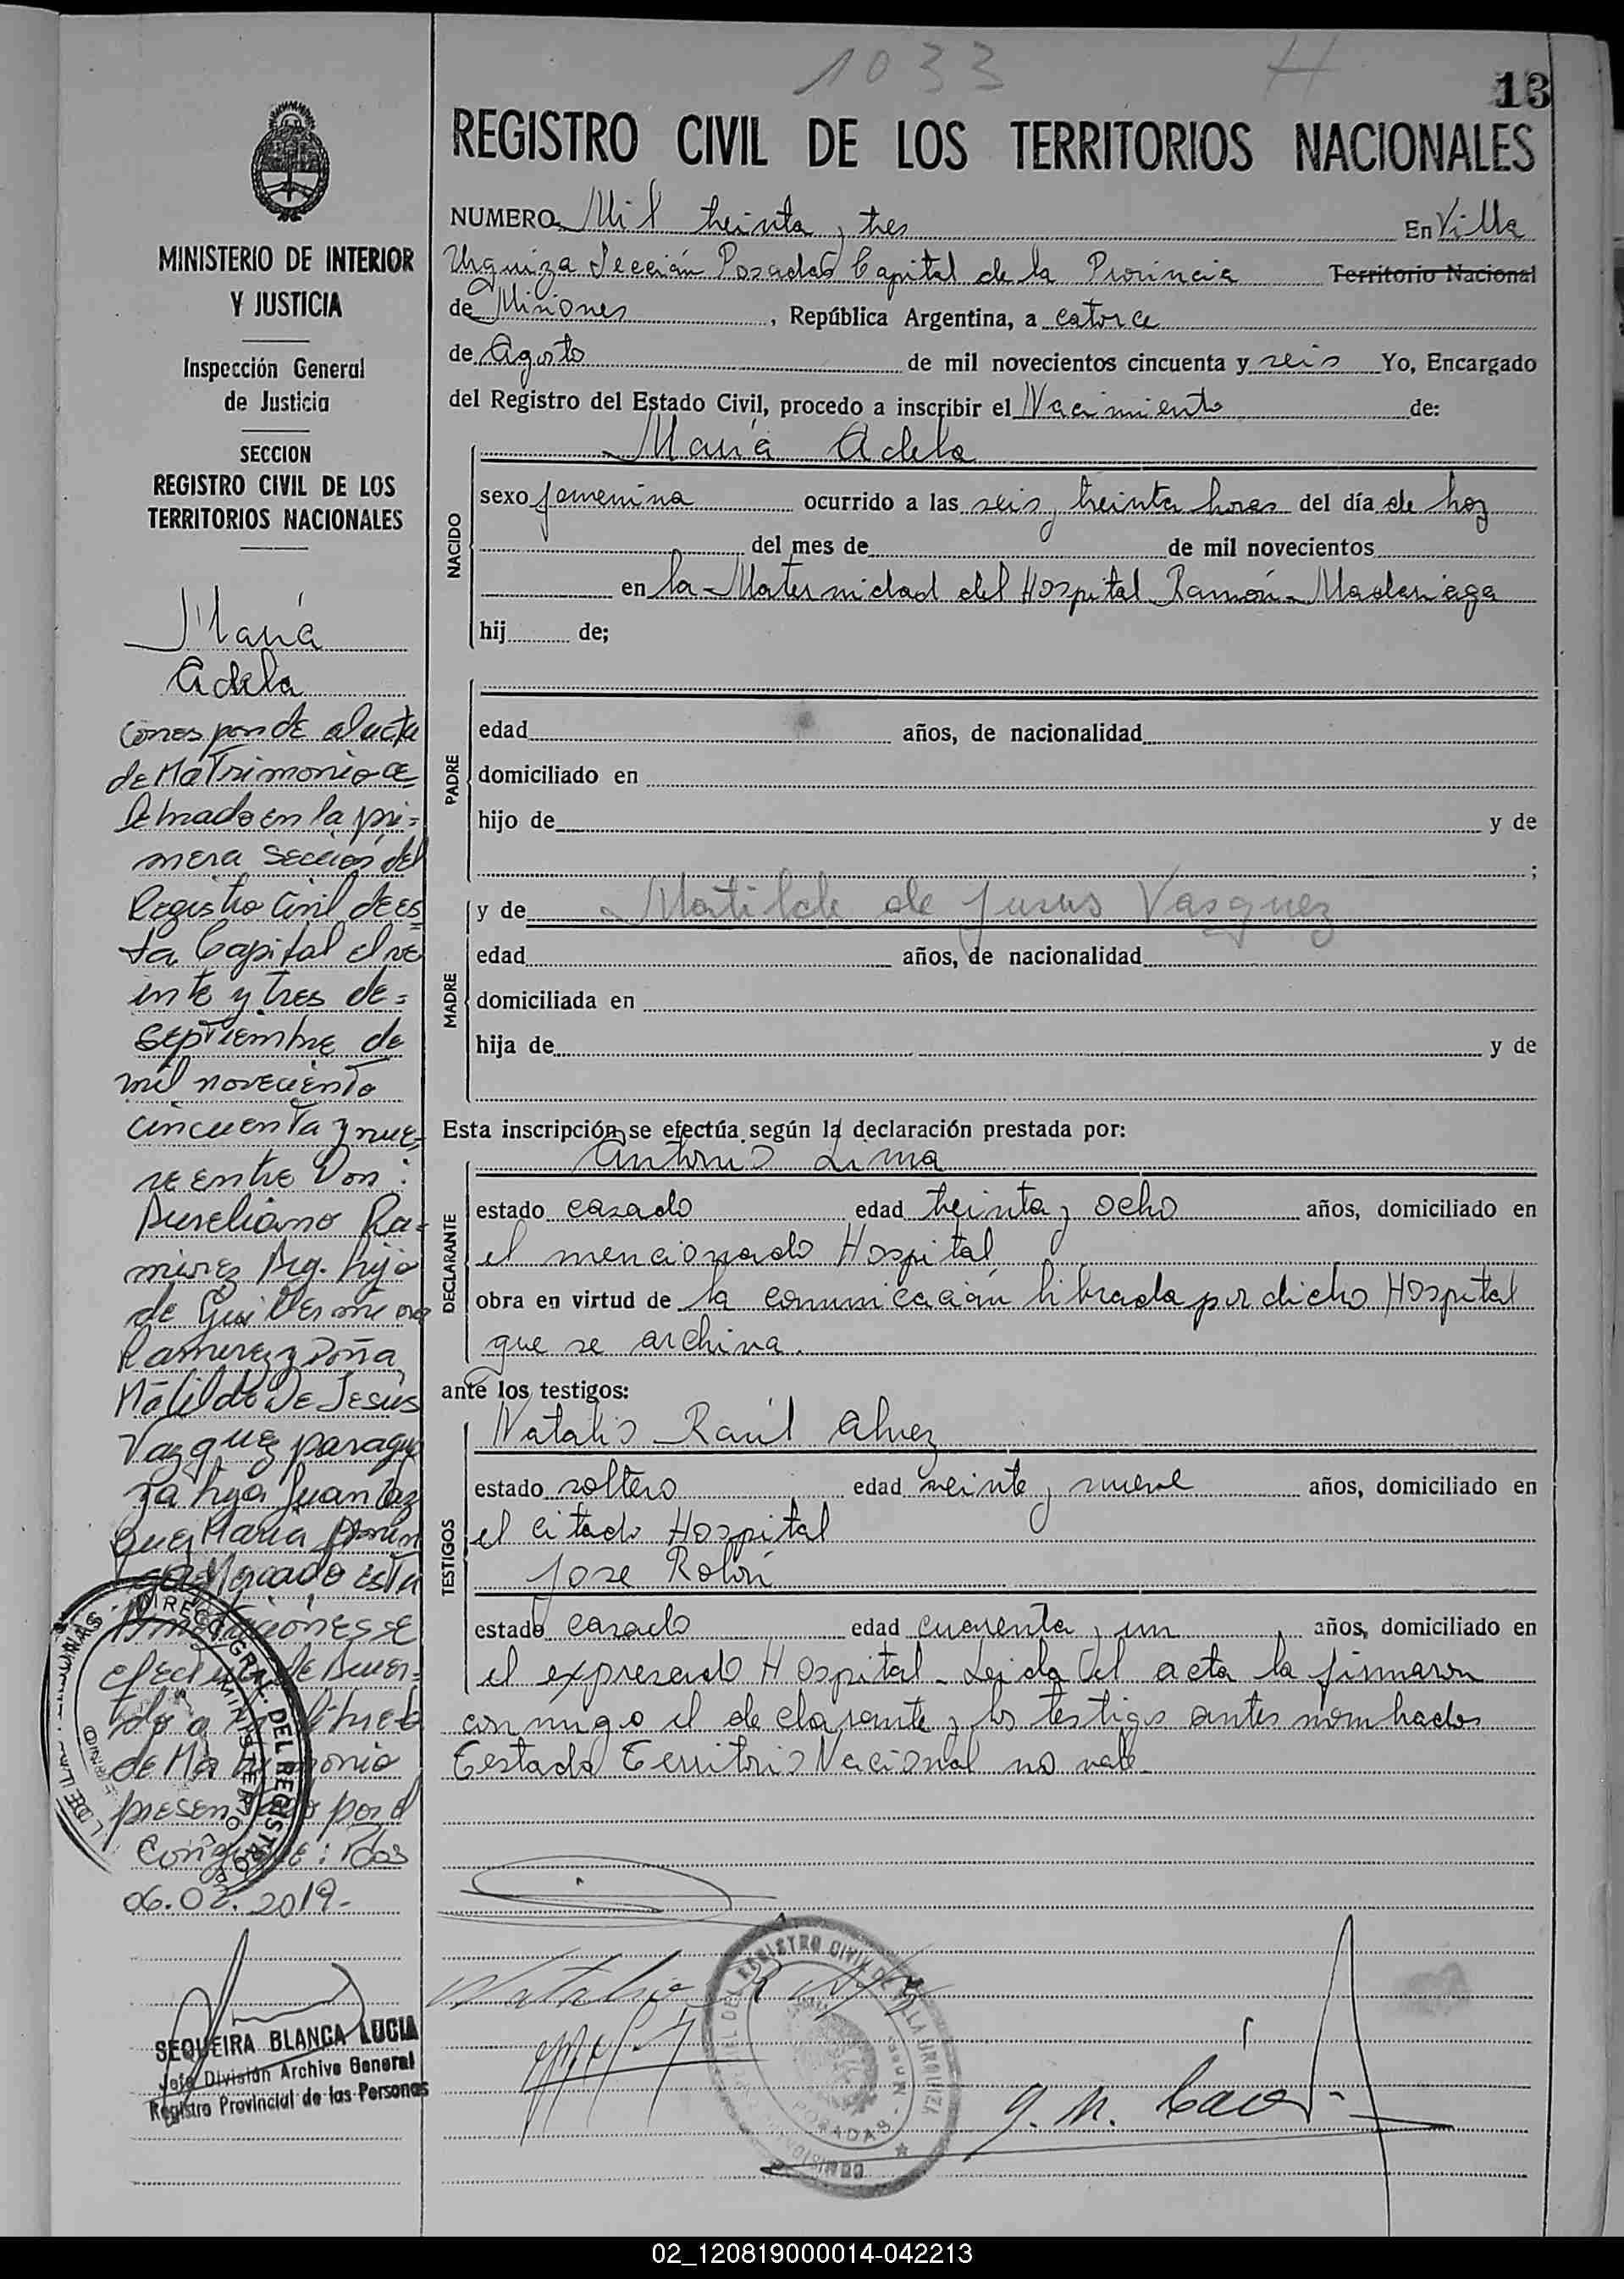 1033 H
13
REGISTRO CIVIL DE LOS TERRITORIOS NACIONALES
NUMERO Mil treinta y tres En Villa
Urquiza Sección Posadas Capital de la Provincia Territorio Nacional
de Misiones, República Argentina, a catorce
de Agosto de mil novecientos cincuenta y seis Yo, Encargado
del Registro del Estado Civil, procedo a inscribir el Nacimiento de:
NACIDO
María Adela
sexo femenina ocurrido a las seis y treinta horas del día de hoy
del mes de de mil novecientos
en la Maternidad del Hospital Ramón Madariaga
hij de;
PADRE
edad años, de nacionalidad
domiciliado en
hijo de y de
;
y de Matilde de Jesus Vasquez
MADRE
edad años, de nacionalidad
domiciliada en
hija de y de
Esta inscripción se efectúa según la declaración prestada por:
DECLARANTE
Antonio Lima
estado casado edad treinta y ocho años, domiciliado en
el mencionado Hospital
obra en virtud de la comunicación librada por dicho Hospital
que se archiva.
ante los testigos:
TESTIGOS
Natalio Raúl Alvez
estado soltero edad veinte y nueve años, domiciliado en
el citado Hospital
Jose Rolón
estado casado edad cuarenta y un años, domiciliado en
el expresado Hospital - Leida el acta la firmaron
conmigo el declarante y los testigos antes nombrados
Testado Territorio Nacional no vale
Natalio R Alvez
MINISTERIO DE INTERIOR
Y JUSTICIA
Inspección General
de Justicia
SECCION
REGISTRO CIVIL DE LOS
TERRITORIOS NACIONALES
María
Adela
Corresponde al acta
de Matrimonio ce=
lebrado en la pri=
mera Sección del
Registro Civil de es
ta Capital el ve
inte y tres de=
Septiembre de
mil noveciento
cincuenta y nue=
ve entre Don:
Aureliano Ra=
mirez Arg. hijo
de
Ramirez y Doña
Matilde De Jesús
Vazquez paragua
ya hija Juan Vaz
quez Maria
esta
Anotaciones se
efectua de Acuer=
do a
de Matrimonio
presentado por el
Pdas
06.02.2019-
SEQUEIRA BLANCA LUCIA
Jefe División Archivo General
Registro Provincial de las Personas
DIREC. GRAL. DEL REGISTRO
MINISTERIO
REGISTRO CIVIL DE VILLA URQUIZA
POSADAS
02_120819000014-042213